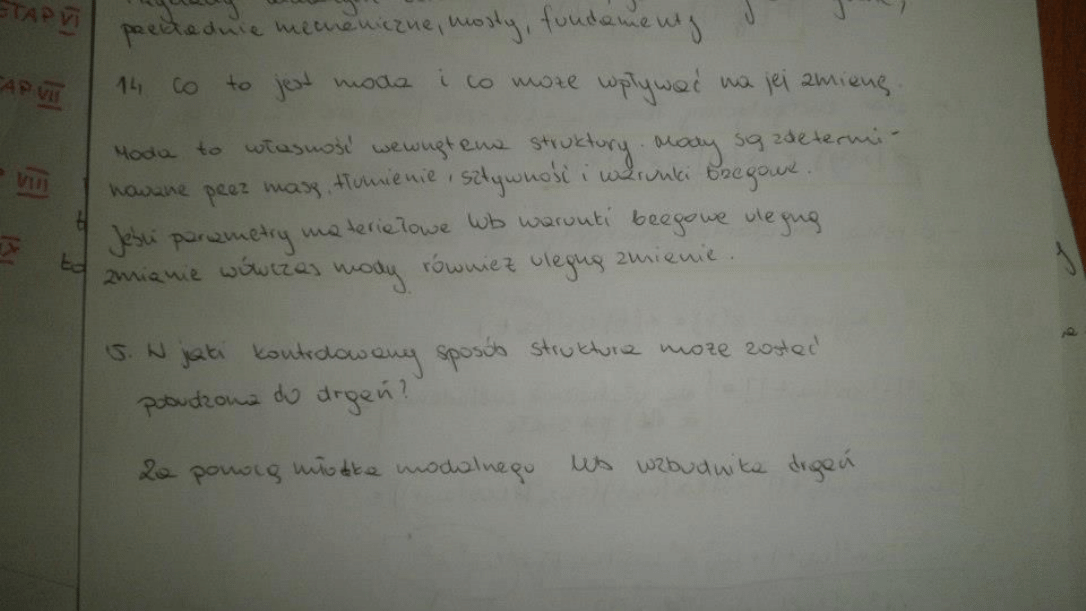 ETAP VI
przekładnie mechaniczne, mosty, fundamenty
14. Co to jest moda i co może wpływać na jej zmianę.
AP VII
Moda to własność wewnętrzna struktury. Mody są zdetermi-
nowane przez masę, tłumienie, sztywność i warunki brzegowe.
VIII
Jeśli parametry materiałowe lub warunki brzegowe ulegną
IX
to
zmianie wówczas mody również ulegną zmianie.
15. W jaki kontrolowany sposób struktura może zostać
pobudzona do drgań?
Za pomocą młotka modalnego lub wzbudnika drgań